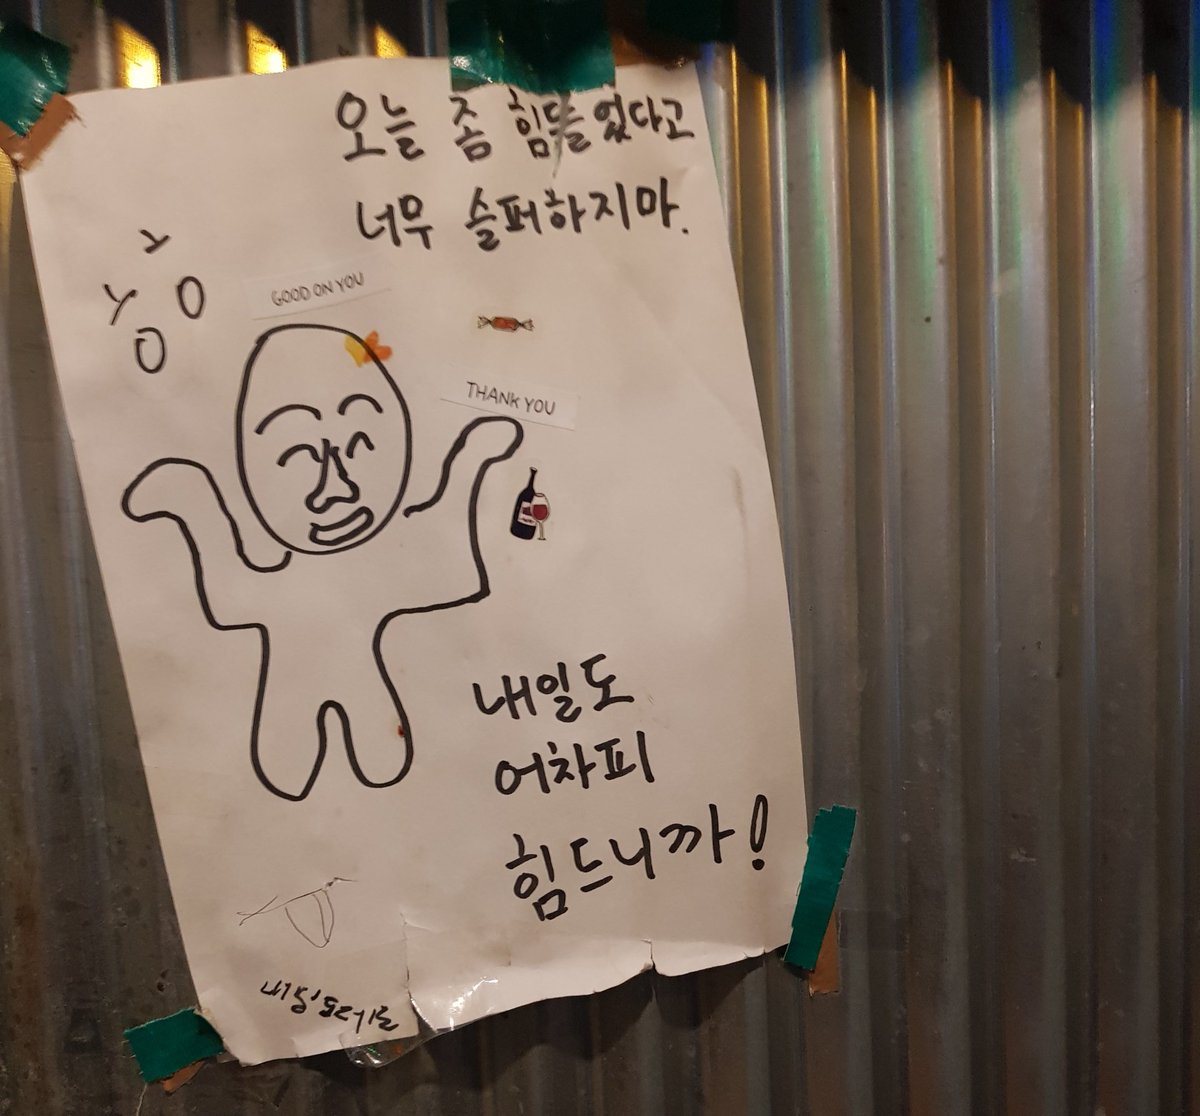 오늘 좀 힘들었다고
너무 슬퍼하지마.
GOOD ON YOU
THANK YOU
내일도
어차피
힘드니까!